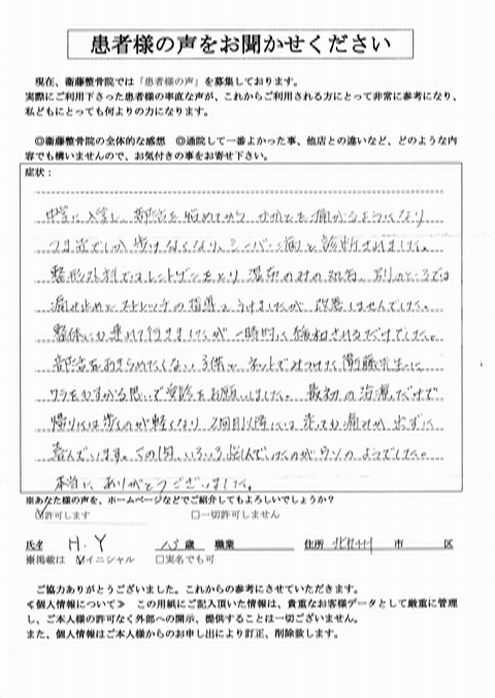 患者様の声をお聞かせください
現在、衛藤整骨院では「患者様の声」を募集しております。
実際にご利用下さった患者様の率直な声が、これからご利用される方にとって非常に参考になり、
私どもにとっても何よりの力になります。
◎衛藤整骨院の全体的な感想　◎通院して一番よかった事、他店との違いなど、どのような内
容でも構いませんので、お気付きの事をお寄せ下さい。
症状：
中学に入学し、部活を始めてから かかとを痛がるようになり
つま先でしか歩けなくなり、シーバー病と診断されました。
整形外科ではレントゲンをとり 湿布のみの処方、別のところでは
痛み止めとストレッチの指導をうけましたが 改善しませんでした。
整体にも連れて行きましたが 一時的に緩和されるだけでした。
部活をあきらめたくない子供と ネットでみつけた衛藤先生に
ワラをもすがる思いで受診をお願いしました。 最初の治療だけで
帰りには歩くのが軽くなり 2回目以降には走っても痛みが出ずに
喜んでいます。この間、いろいろ悩んでいたのがウソのようでした。
本当に ありがとうございました。
※あなた様の声を、ホームページなどでご紹介してもよろしいでしょうか？
☑許可します　□一切許可しません
氏名 H.Y 13歳 職業 住所 北九州 市 区
※掲載は ☑イニシャル □実名でも可
ご協力ありがとうございました。これからの参考にさせていただきます。
≪個人情報について≫　この用紙にご記入頂いた情報は、貴重なお客様データとして厳重に管理
し、ご本人様の許可なく外部への開示、提供することは一切ございません。
また、個人情報はご本人様からのお申し出により訂正、削除致します。